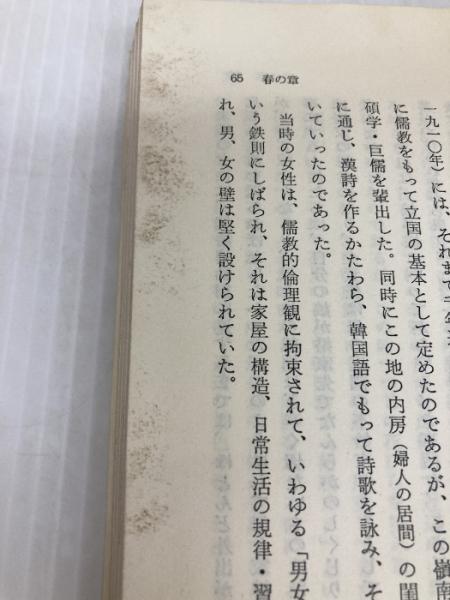 65 春の章
一九一〇年）には、それまで
に儒教をもって立国の基本として定めたのであるが、この嶺南
碩学・巨儒を輩出した。同時にこの地の内房（婦人の居間）の閨
に通じ、漢詩を作るかたわら、韓国語でもって詩歌を詠み、そ
いていったのであった。
当時の女性は、儒教的倫理観に拘束されて、いわゆる「男女
いう鉄則にしばられ、それは家屋の構造、日常生活の規律・習
れ、男、女の壁は堅く設けられていた。